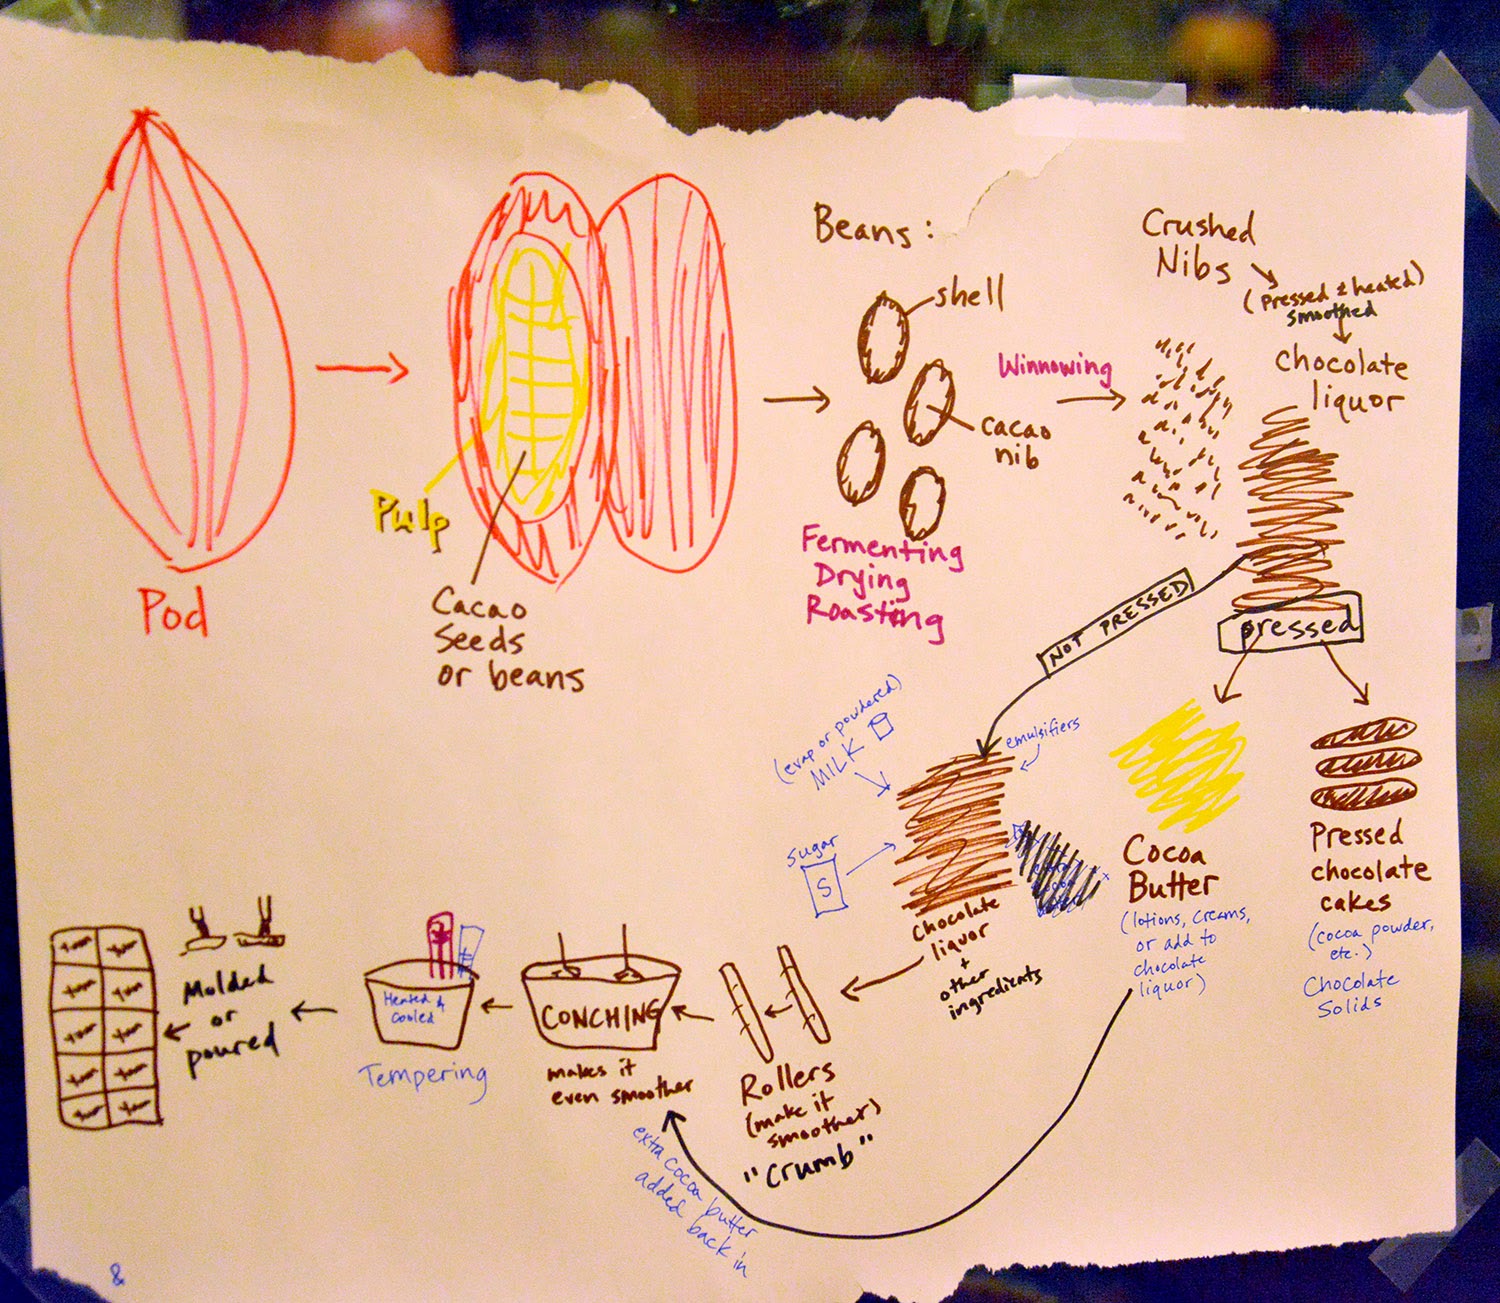 Pod
Pulp
Cacao
Seeds
or beans
Beans:
shell
cacao
nib
Fermenting
Drying
Roasting
Winnowing
Crushed
Nibs
(pressed & heated)
smoothed
chocolate
liquor
NOT PRESSED
pressed
(evap or powdered)
MILK
emulsifiers
sugar
S
chocolate
liquor
+
other
ingredients
Cocoa
Butter
(lotions, creams,
or add to
chocolate
liquor)
Pressed
chocolate
cakes
(cocoa powder,
etc.)
Chocolate
Solids
Rollers
(make it
smoother)
"Crumb"
CONCHING
makes it
even smoother
extra cocoa butter
added back in
Heated &
Cooled
Tempering
Molded
or
poured
&